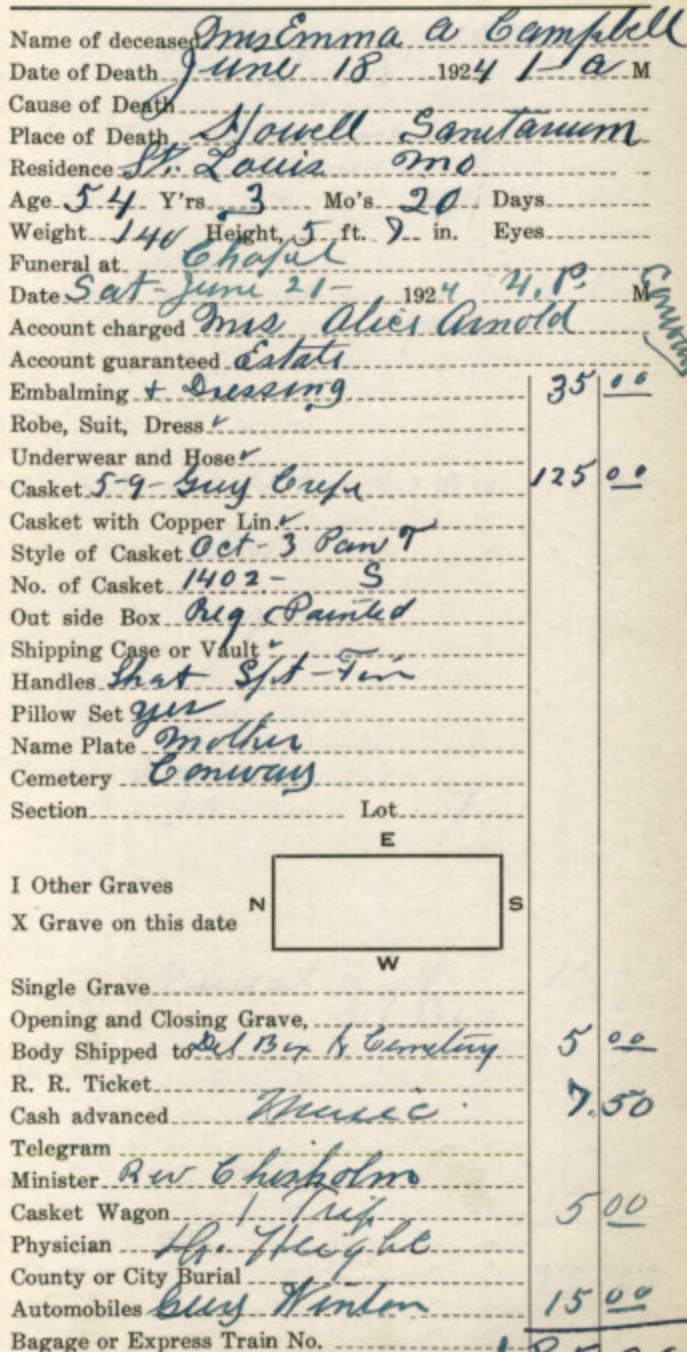 Name of deceased Mrs Emma A Campbell
Date of Death June 18 1924 1 - a M
Cause of Death
Place of Death Howell Sanitarium
Residence St. Louis Mo
Age 54 Y'rs 3 Mo's 20 Days
Weight 140 Height, 5 ft. 7 in. Eyes
Funeral at Chapel
Date Sat - June 21 - 1924 4. P. M
Account charged Mrs Alice Arnold
Account guaranteed Estate
Embalming + Dressing 35 00
Robe, Suit, Dress ✓
Underwear and Hose ✓
Casket 5-9 - Guy Crepe 125 00
Casket with Copper Lin. ✓
Style of Casket Oct - 3 Pan T
No. of Casket 1402 - S
Out side Box Reg Painted
Shipping Case or Vault ✓
Handles Shat
Pillow Set yes
Name Plate Mother
Cemetery Conway
Section Lot
E
I Other Graves
N S
X Grave on this date
W
Single Grave
Opening and Closing Grave,
Body Shipped to Del Box to Cemetery 5 00
R. R. Ticket
Cash advanced Music 7.50
Telegram
Minister Rev Chisholm
Casket Wagon 1 Trip 5 00
Physician Dr. Height
County or City Burial
Automobiles Guy Winton 15 00
Bagage or Express Train No.